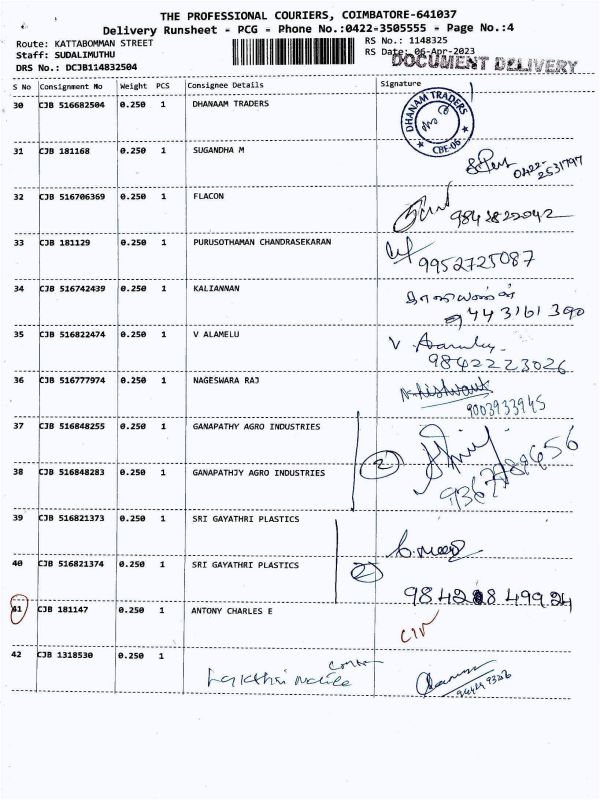 THE PROFESSIONAL COURIERS, COIMBATORE-641037
Delivery Runsheet - PCG - Phone No.:0422-3505555 - Page No.:4
Route: KATTABOMMAN STREET
Staff: SUDALIMUTHU
DRS No.: DCJB114832504
RS No.: 1148325
RS Date: 06-Apr-2023
DOCUMENT DELIVERY
S No Consignment No Weight PCS Consignee Details Signature
30 CJB 516682504 0.250 1 DHANAM TRADERS
DHANAM TRADERS
CBE-06
31 CJB 181168 0.250 1 SUGANDHA M
0422-
2531797
32 CJB 516706369 0.250 1 FLACON
9843822042
33 CJB 181129 0.250 1 PURUSOTHAMAN CHANDRASEKARAN
9952725087
34 CJB 516742439 0.250 1 KALIANNAN
9443161390
35 CJB 516822474 0.250 1 V ALAMELU
9842223026
36 CJB 516777974 0.250 1 NAGESWARA RAJ
9003933945
37 CJB 516848255 0.250 1 GANAPATHY AGRO INDUSTRIES
2
38 CJB 516848283 0.250 1 GANAPATHJY AGRO INDUSTRIES
39 CJB 516821373 0.250 1 SRI GAYATHRI PLASTICS
40 CJB 516821374 0.250 1 SRI GAYATHRI PLASTICS
2
41 CJB 181147 0.250 1 ANTONY CHARLES E
42 CJB 1318530 0.250 1